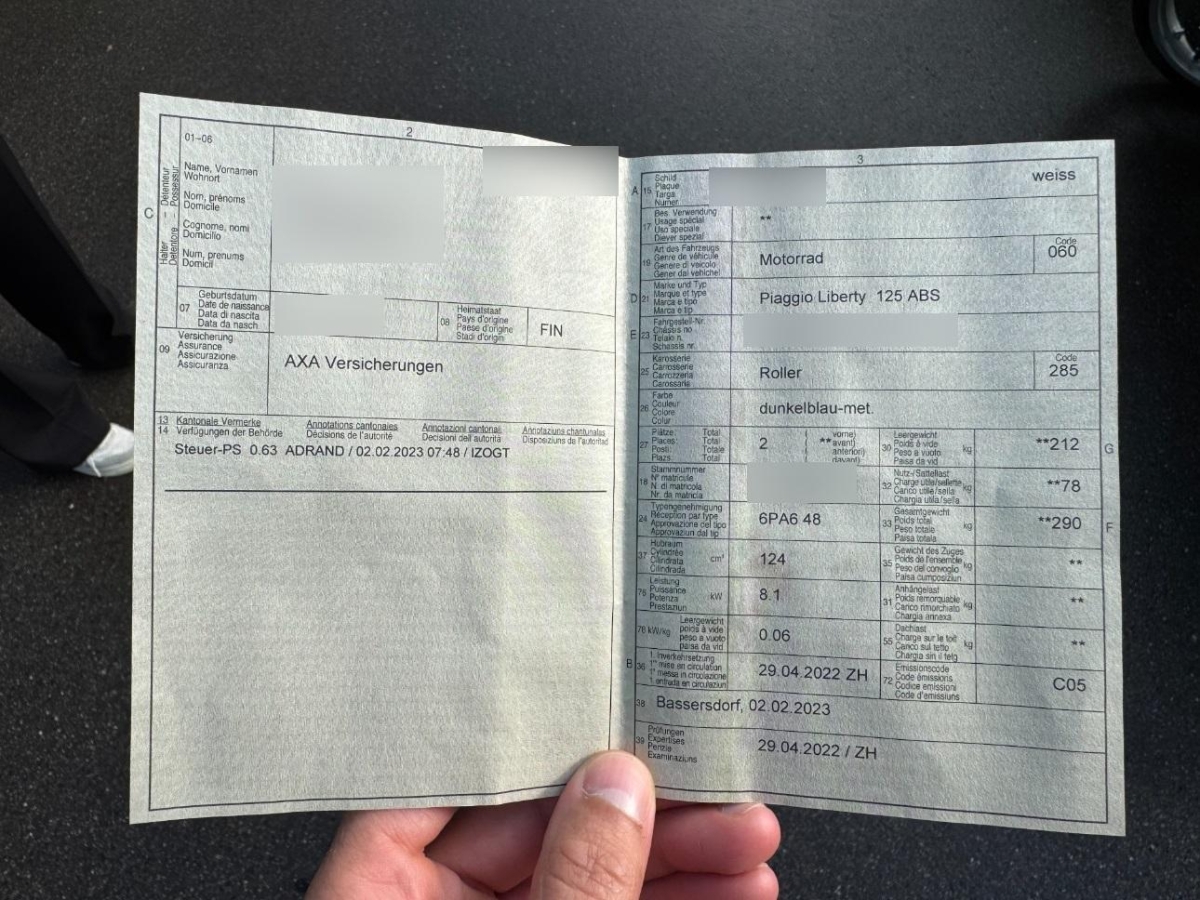 2
01-06
C
Halter - Detenteur
Detentore Possessur
Name, Vornamen
Wohnort
Nom, prénoms
Domicile
Cognome, nomi
Domicilio
Num, prenums
Domicil
07
Geburtsdatum
Date de naissance
Data di nascita
Data da nasch
08
Heimatstaat
Pays d'origine
Paese d'origine
Stadi d'origin
FIN
09
Versicherung
Assurance
Assicurazione
Assicuranza
AXA Versicherungen
13 Kantonale Vermerke Annotations cantonales Annotazioni cantonali Annotaziuns chantunalas
14 Verfügungen der Behörde Décisions de l'autorité Decisioni dell'autorità Disposiziuns da l'autoritad
Steuer-PS 0.63 ADRAND / 02.02.2023 07:48 / IZOGT
3
A 15
Schild
Plaque
Targa
Numer
weiss
17
Bes. Verwendung
Usage spécial
Uso speciale
Diever spezial
**
19
Art des Fahrzeugs
Genre de véhicule
Genere di veicolo
Gener dal vehichel
Motorrad
Code
060
D 21
Marke und Typ
Marque et type
Marca e tipo
Marca e tip
Piaggio Liberty 125 ABS
E 23
Fahrgestell-Nr.
Châssis no
Telaio n.
Schassis nr.
25
Karosserie
Carrosserie
Carrozzeria
Carossaria
Roller
Code
285
26
Farbe
Couleur
Colore
Colur
dunkelblau-met.
27
Plätze: Total
Places: Total
Posti: Totale
Plazs: Total
2
( vorne)
** avant)
anteriori)
davant)
30
Leergewicht
Poids à vide
Peso a vuoto
Paisa da vid
kg
**212
G
18
Stammnummer
N° matricule
N. di matricola
Nr. da matricla
32
Nutz-/Sattellast
Charge utile/sellette
Carico utile/sella
Chargia utila/sella
kg
**78
24
Typengenehmigung
Réception par type
Approvazione del tipo
Approvaziun dal tip
6PA6 48
33
Gesamtgewicht
Poids total
Peso totale
Paisa totala
kg
**290
F
37
Hubraum
Cylindrée
Cilindrata
Cilindrada
cm³
124
35
Gewicht des Zuges
Poids de l'ensemble
Peso del convoglio
Paisa cumposiziun
kg
**
76
Leistung
Puissance
Potenza
Prestaziun
kW
8.1
31
Anhängelast
Poids remorquable
Carico rimorchiato
Chargia annexa
kg
**
78 kW/kg
Leergewicht
poids à vide
peso a vuoto
paisa da vid
0.06
55
Dachlast
Charge sur le toit
Carico sul tetto
Chargia sin il tetg
kg
**
B 36
1. Inverkehrsetzung
1re mise en circulation
1a messa in circolazione
1. entrada en circulaziun
29.04.2022 ZH
72
Emissionscode
Code émissions
Codice emissioni
Code d'emissiuns
C05
38 Bassersdorf, 02.02.2023
39
Prüfungen
Expertises
Perizie
Examinaziuns
29.04.2022 / ZH